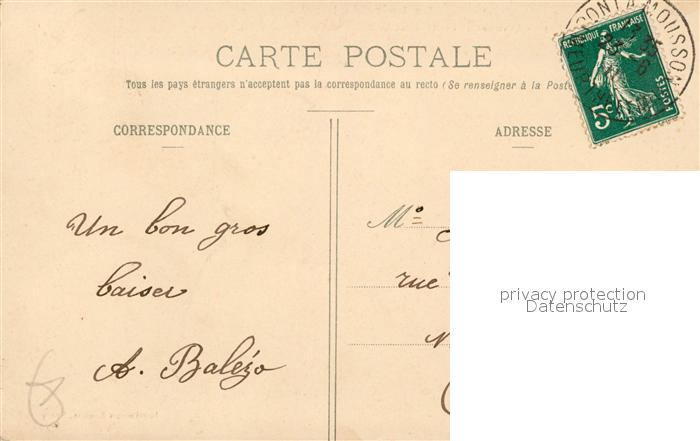 CARTE POSTALE
Tous les pays étrangers n'acceptent pas la correspondance au recto (Se renseigner à la Poste
CORRESPONDANCE
ADRESSE
PONT-A-MOUSSON
REPUBLIQUE FRANÇAISE
POSTES
5c
Un bon gros
baiser
A. Balézo
Mo
rue
privacy protection
Datenschutz